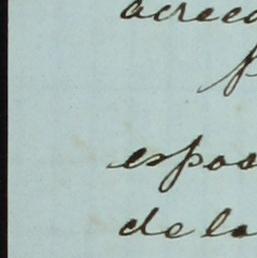 acreed
p
espos
de la